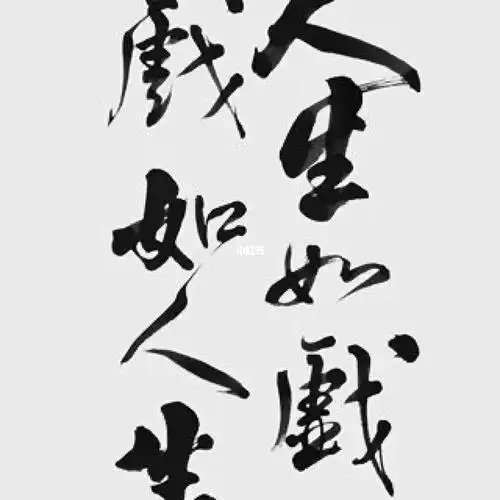 人生如戲
戲如人生
小红书